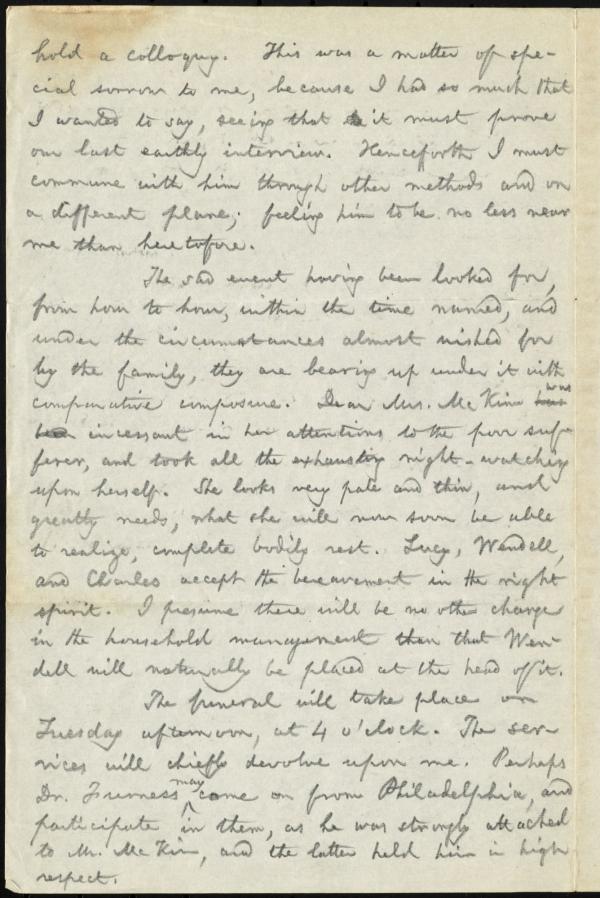 hold a colloquy. This was a matter of spe-
cial sorrow to me, because I had so much that
I wanted to say, seeing that it must prove
our last earthly interview. Henceforth I must
commune with him through other methods and on
a different plane; feeling him to be no less near
me than heretofore.
The sad event having been looked for,
from hour to hour, within the time named, and
under the circumstances almost wished for
by the family, they are bearing up under it with
comparative composure. Dear Mrs. McKim has was
been incessant in her attentions to the poor suf-
ferer, and took all the exhausting night-watching
upon herself. She looks very pale and thin, and
greatly needs, what she will now soon be able
to realize, complete bodily rest. Lucy, Wendell,
and Charles accept the bereavement in the right
spirit. I presume there will be no other change
in the household management than that Wen-
dell will naturally be placed at the head of it.
The funeral will take place on
Tuesday afternoon, at 4 o'clock. The ser-
vices will chiefly devolve upon me. Perhaps
Dr. Furness may come on from Philadelphia, and
participate in them, as he was strongly attached
to Mr. McKim, and the latter held him in high
respect.